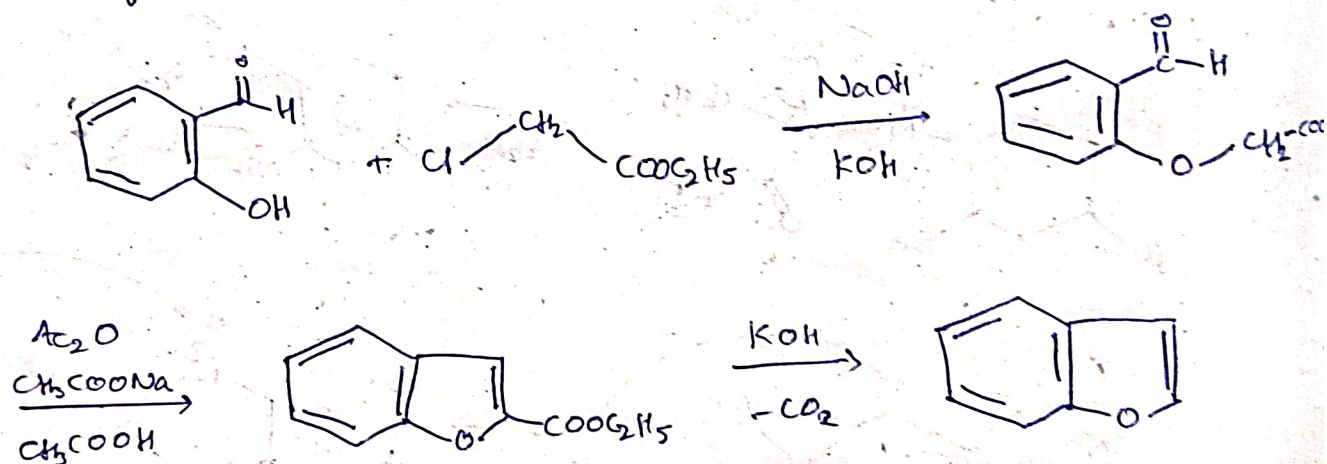 O
C-H
OH
+ Cl CH2 COOC2H5
NaOH
KOH
O
C-H
O CH2-COO
Ac2O
CH3COONa
CH3COOH
O COOC2H5
KOH
-CO2
O